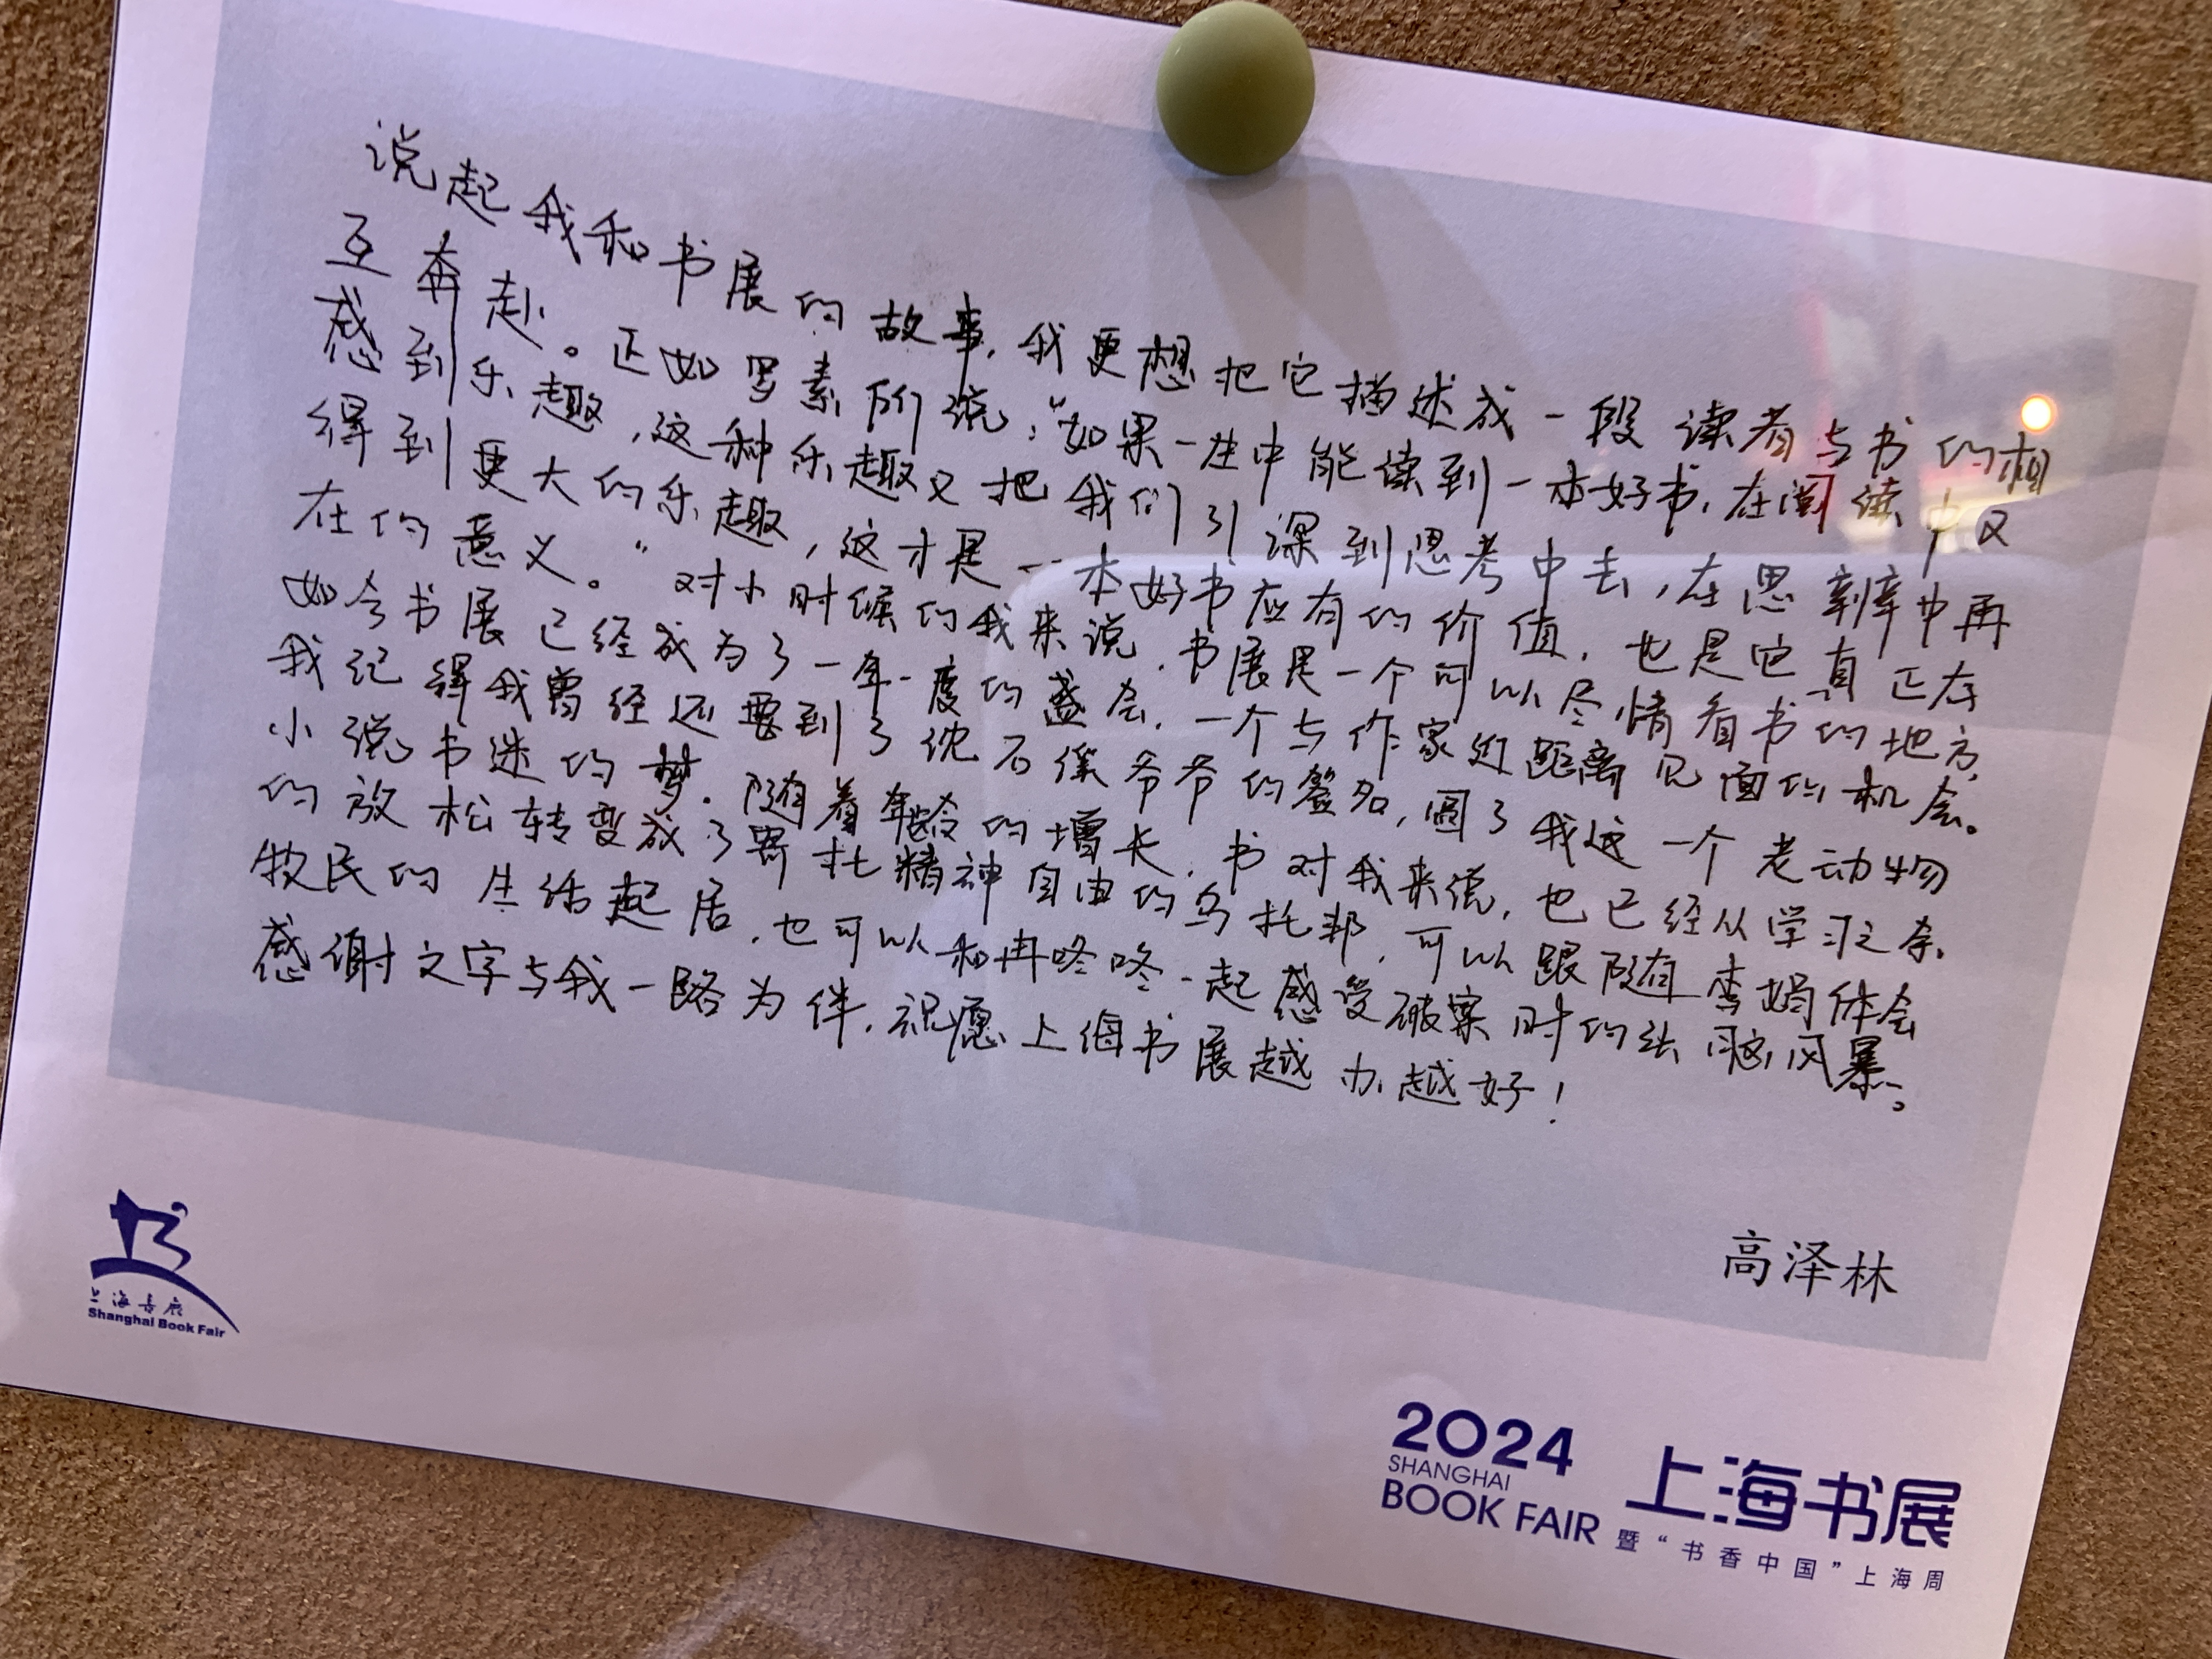 说起我和书展的故事，我更想把它描述成一段读者与书的相
互奔赴。正如罗素所说：“如果一生中能读到一本好书，在阅读中又
感到乐趣，这种乐趣又把我们引深到思考中去，在思辨中再
得到更大的乐趣，这才是一本好书应有的价值，也是它真正存
在的意义。”对小时候的我来说，书展是一个可以尽情看书的地方，
如今书展已经成为了一年一度的盛会，一个与作家近距离见面的机会。
我记得我曾经还要到了沈石溪爷爷的签名，圆了我这一个老动物
小说书迷的梦。随着年龄的增长，书对我来说，也已经从学习之余
的放松转变成了寄托精神自由的乌托邦，可以跟随李娟体会
牧民的生活起居，也可以和冉咚咚一起感受破案时的头脑风暴。
感谢文字与我一路为伴，祝愿上海书展越办越好！
高泽林
上海书展
Shanghai Book Fair
2024
SHANGHAI
BOOK FAIR
上海书展
暨“书香中国”上海周